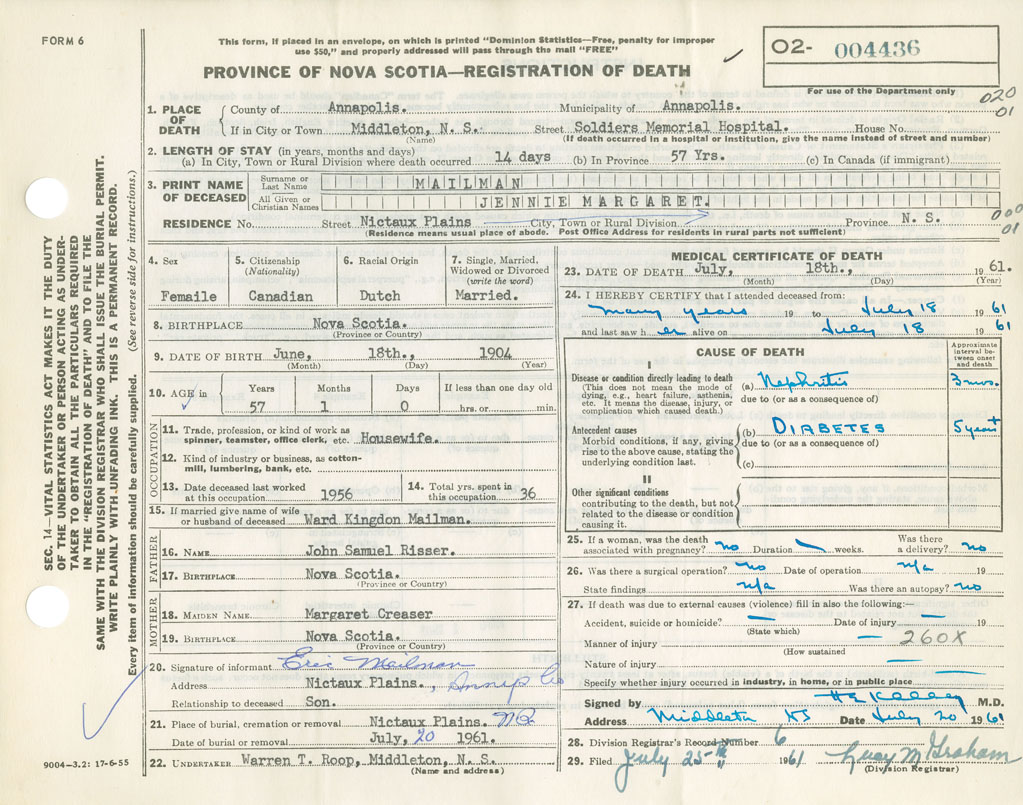 FORM 6
This form, if placed in an envelope, on which is printed "Dominion Statistics—Free, penalty for improper
use $50," and properly addressed will pass through the mail "FREE"
PROVINCE OF NOVA SCOTIA—REGISTRATION OF DEATH
02- 004436
For use of the Department only
020
01
1. PLACE OF DEATH County of Annapolis. Municipality of Annapolis.
If in City or Town Middleton, N. S. Street Soldiers Memorial Hospital. House No.
(Name) (If death occurred in a hospital or institution, give the name instead of street and number)
2. LENGTH OF STAY (in years, months and days)
(a) In City, Town or Rural Division where death occurred 14 days (b) In Province 57 Yrs. (c) In Canada (if immigrant)
3. PRINT NAME OF DECEASED
Surname or Last Name MAILMAN
All Given or Christian Names JENNIE MARGARET.
RESIDENCE No. Street Nictaux Plains City, Town or Rural Division Province N. S.
(Residence means usual place of abode. Post Office Address for residents in rural parts not sufficient)
000
01
4. Sex
Femaile
5. Citizenship
(Nationality)
Canadian
6. Racial Origin
Dutch
7. Single, Married,
Widowed or Divorced
(write the word)
Married.
8. BIRTHPLACE Nova Scotia.
(Province or Country)
9. DATE OF BIRTH June, 18th., 1904
(Month) (Day) (Year)
10. AGE in
Years Months Days If less than one day old
57 1 0 hrs. or min.
OCCUPATION
11. Trade, profession, or kind of work as
spinner, teamster, office clerk, etc. Housewife.
12. Kind of industry or business, as cotton-
mill, lumbering, bank, etc.
13. Date deceased last worked
at this occupation 1956
14. Total yrs. spent in
this occupation 36
15. If married give name of wife
or husband of deceased Ward Kingdon Mailman.
FATHER
16. NAME John Samuel Risser.
17. BIRTHPLACE Nova Scotia.
(Province or Country)
MOTHER
18. MAIDEN NAME Margaret Creaser
19. BIRTHPLACE Nova Scotia.
(Province or Country)
20. Signature of informant Eric Mailman
Address Nictaux Plains., Annap Co
Relationship to deceased Son.
21. Place of burial, cremation or removal Nictaux Plains.
Date of burial or removal July, 20 1961.
22. UNDERTAKER Warren T. Roop, Middleton, N. S.
(Name and address)
MEDICAL CERTIFICATE OF DEATH
23. DATE OF DEATH July, 18th., 1961.
(Month) (Day) (Year)
24. I HEREBY CERTIFY that I attended deceased from:
many years 19 to July 18 1961
and last saw her alive on July 18 1961
CAUSE OF DEATH
Approximate
interval be-
tween onset
and death
I
Disease or condition directly leading to death
(This does not mean the mode of
dying, e.g., heart failure, asthenia,
etc. It means the disease, injury, or
complication which caused death.)
(a) Nephritis 3 mos.
due to (or as a consequence of)
Antecedent causes
Morbid conditions, if any, giving
rise to the above cause, stating the
underlying condition last.
(b) DIABETES 5 years
due to (or as a consequence of)
(c)
II
Other significant conditions
contributing to the death, but not
related to the disease or condition
causing it.
25. If a woman, was the death
associated with pregnancy? no Duration weeks. Was there
a delivery? no
26. Was there a surgical operation? no Date of operation n/a 19
State findings n/a Was there an autopsy? no
27. If death was due to external causes (violence) fill in also the following:—
Accident, suicide or homicide? — Date of injury — 19
(State which)
Manner of injury — 260X
(How sustained
Nature of injury —
Specify whether injury occurred in industry, in home, or in public place —
Signed by H E Kelley M.D.
Address Middleton NS Date July 20 1961
28. Division Registrar's Record Number 6
29. Filed July 25th 1961 Guey M Graham
(Division Registrar)
9004-3.2: 17-6-55
SEC. 14—VITAL STATISTICS ACT MAKES IT THE DUTY
OF THE UNDERTAKER OR PERSON ACTING AS UNDER-
TAKER TO OBTAIN ALL THE PARTICULARS REQUIRED
IN THE "REGISTRATION OF DEATH" AND TO FILE THE
SAME WITH THE DIVISION REGISTRAR WHO SHALL ISSUE THE BURIAL PERMIT.
WRITE PLAINLY WITH UNFADING INK. THIS IS A PERMANENT RECORD.
Every item of information should be carefully supplied. (See reverse side for instructions.)